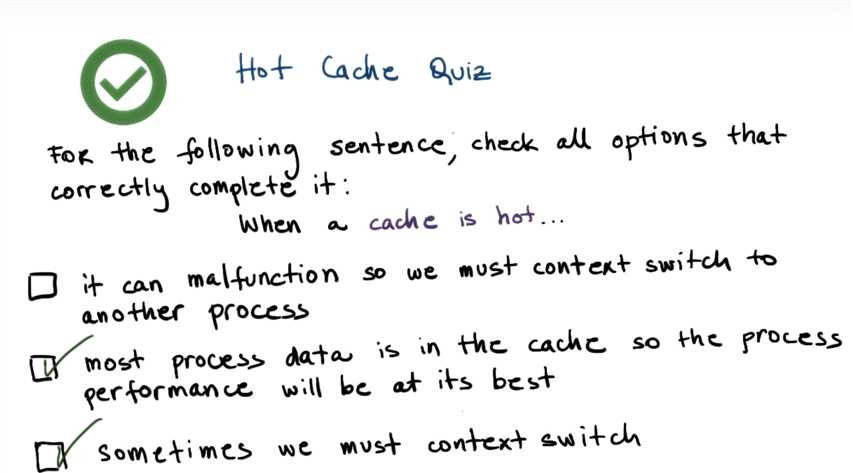 Hot Cache Quiz
For the following sentence, check all options that
correctly complete it:
When a cache is hot...
it can malfunction so we must context switch to
another process
most process data is in the cache so the process
performance will be at its best
sometimes we must context switch